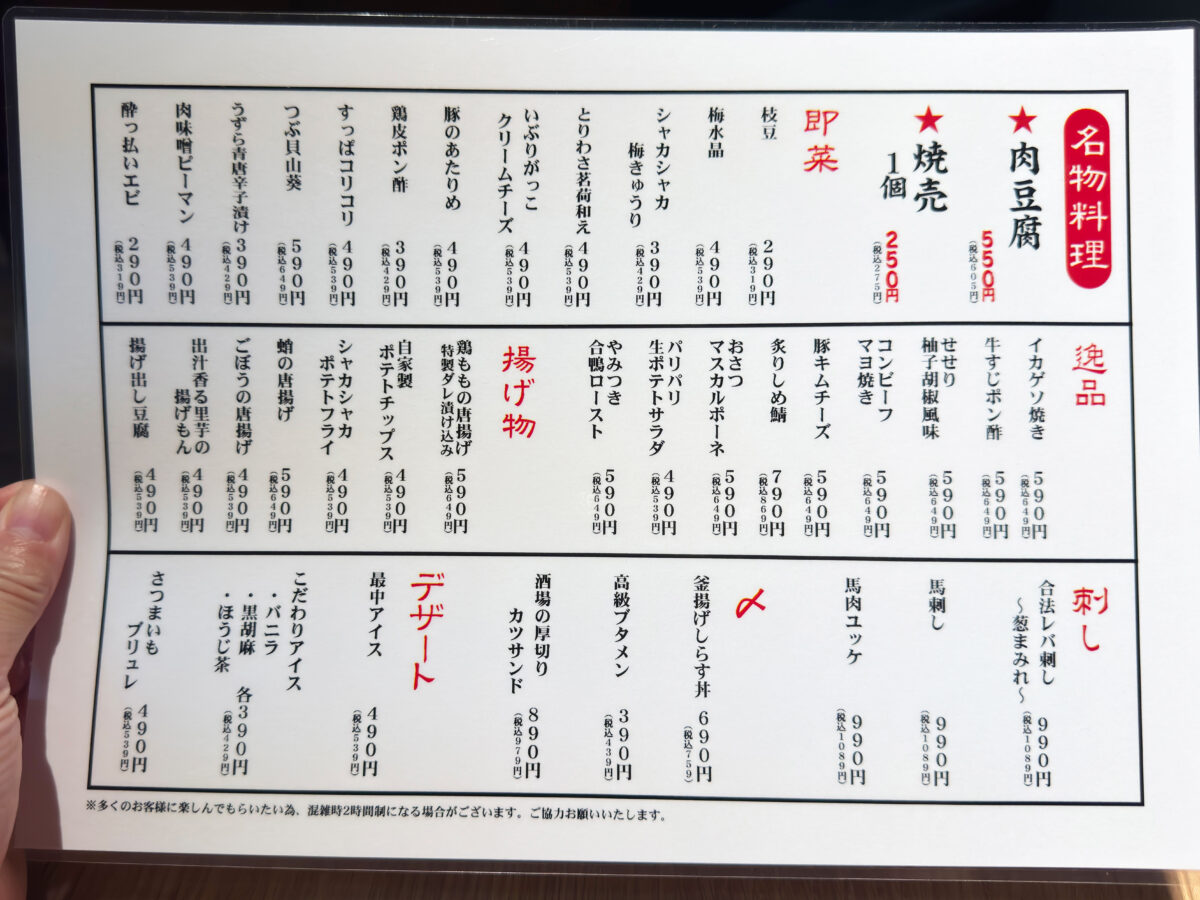 名物料理
★肉豆腐
550円
(税込605円)
★焼売
1個
250円
(税込275円)
即菜
枝豆
290円
(税込319円)
梅水晶
490円
(税込539円)
シャカシャカ
梅きゅうり
390円
(税込429円)
とりわさ茗荷和え
490円
(税込539円)
いぶりがっこ
クリームチーズ
490円
(税込539円)
豚のあたりめ
490円
(税込539円)
鶏皮ポン酢
390円
(税込429円)
すっぱコリコリ
490円
(税込539円)
つぶ貝山葵
590円
(税込649円)
うずら青唐辛子漬け
390円
(税込429円)
肉味噌ピーマン
490円
(税込539円)
酔っ払いエビ
290円
(税込319円)
逸品
イカゲソ焼き
590円
(税込649円)
牛すじポン酢
590円
(税込649円)
せせり
柚子胡椒風味
590円
(税込649円)
コンビーフ
マヨ焼き
590円
(税込649円)
豚キムチーズ
590円
(税込649円)
炙りしめ鯖
790円
(税込869円)
おさつ
マスカルポーネ
590円
(税込649円)
パリパリ
生ポテトサラダ
490円
(税込539円)
やみつき
合鴨ロースト
590円
(税込649円)
揚げ物
鶏ももの唐揚げ
特製ダレ漬け込み
590円
(税込649円)
自家製
ポテトチップス
490円
(税込539円)
シャカシャカ
ポテトフライ
490円
(税込539円)
蛸の唐揚げ
590円
(税込649円)
ごぼうの唐揚げ
490円
(税込539円)
出汁香る里芋の
揚げもん
490円
(税込539円)
揚げ出し豆腐
490円
(税込539円)
刺し
合法レバ刺し
〜葱まみれ〜
990円
(税込1089円)
馬刺し
990円
(税込1089円)
馬肉ユッケ
990円
(税込1089円)
〆
釜揚げしらす丼
690円
(税込759)
高級ブタメン
390円
(税込439円)
酒場の厚切り
カツサンド
890円
(税込979円)
デザート
最中アイス
490円
(税込539円)
こだわりアイス
・バニラ
・黒胡麻
・ほうじ茶
各390円
(税込429円)
さつまいも
ブリュレ
490円
(税込539円)
※多くのお客様に楽しんでもらいたい為、混雑時2時間制になる場合がございます。ご協力お願いいたします。